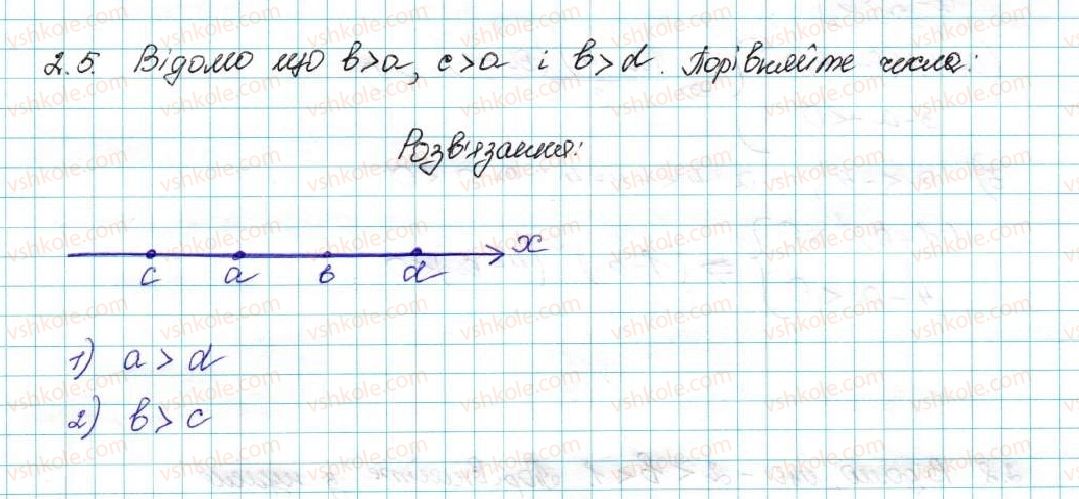 2.5. Відомо що b>a, c>a і b>d. Порівняйте числа:
Розв'язання:
x
c a в d
1) a > d
2) b > c